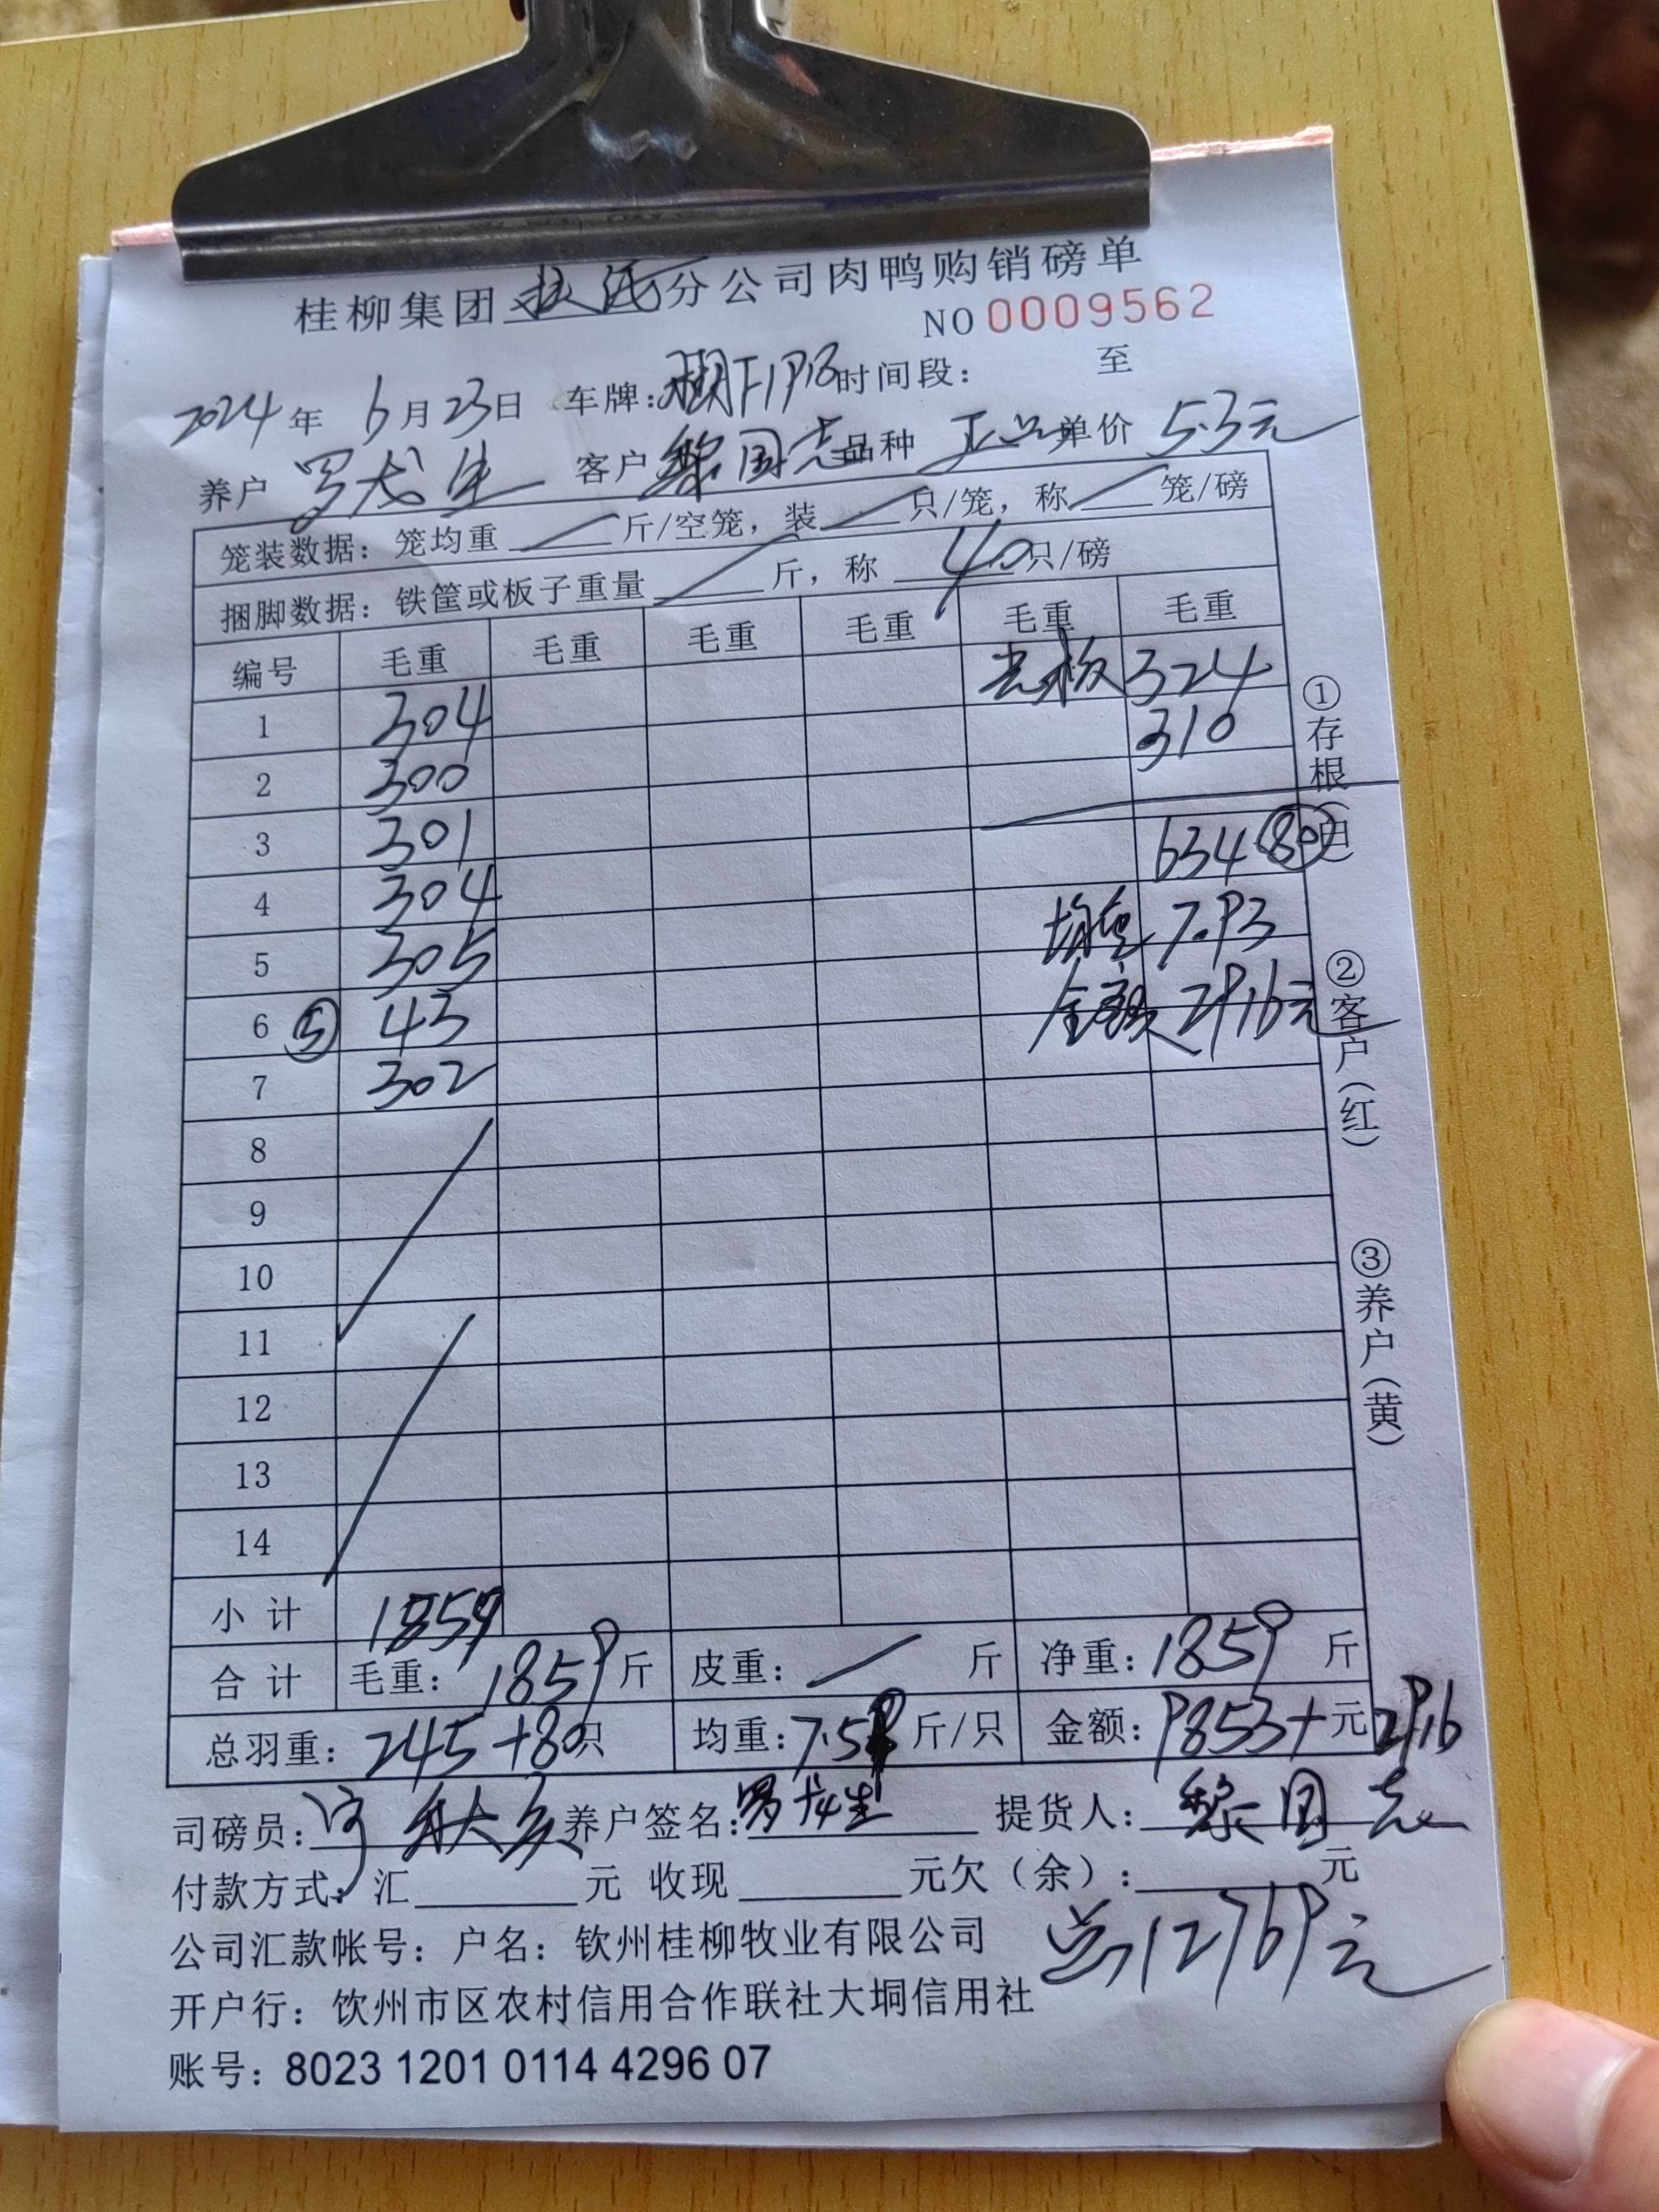 桂柳集团 分公司肉鸭购销磅单
NO 0009562
2024年 6月23日 车牌: 时间段: 至
养户 罗 生 客户 黎国志 品种 正品 单价 5.3元
笼装数据: 笼均重 斤/空笼, 装 只/笼, 称 笼/磅
捆脚数据: 铁筐或板子重量 斤, 称 40 只/磅
编号 毛重 毛重 毛重 毛重 毛重 毛重
1 304 光板 324
2 300 310
3 301 634 80
4 304 均重 7.93
5 305 金额 2916元
6 ⑤ 43
7 302
8
9
10
11
12
13
14
小计 1859
合计 毛重: 1859 斤 皮重: 斤 净重: 1859 斤
总羽重: 245+80只 均重: 7.59 斤/只 金额: 9853+ 元 2916
司磅员: 养户签名: 罗 生 提货人: 黎国志
付款方式: 汇 元 收现 元欠（余）: 元
总12769元
公司汇款帐号: 户名: 钦州桂柳牧业有限公司
开户行: 钦州市区农村信用合作联社大垌信用社
账号: 8023 1201 0114 4296 07
①存根（白）
②客户（红）
③养户（黄）